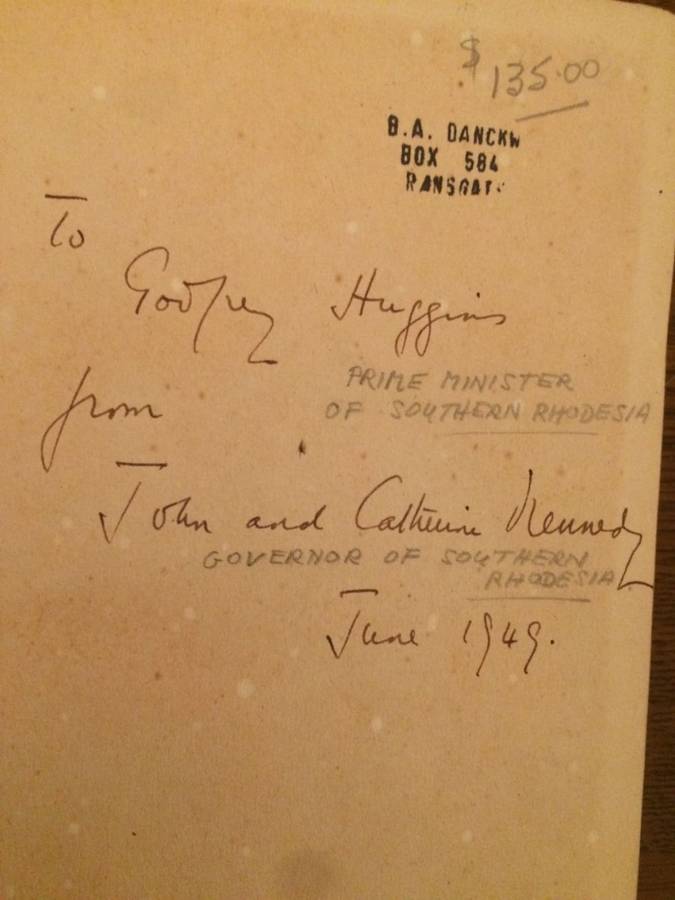 $ 135.00
B.A. DANCKW
BOX 584
RANSGAT
To
Godfrey Huggins
PRIME MINISTER
from
OF SOUTHERN RHODESIA
John and Catherine Kennedy
GOVERNOR OF SOUTHERN
RHODESIA
June 1949.